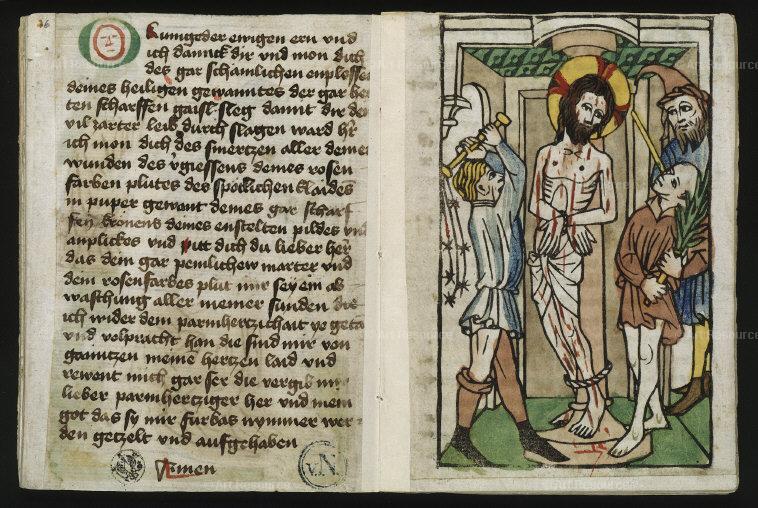 36
O kunig der ewigen ern und
ich dannck dir vnd mon dich
des gar schamlichen enplossen
deines heiligen gewanntes der gar
ten scharffen gaisl sleg damit dir
vil zarter leib durch slagen ward
ich mon dich des smertzen aller deiner
wunden des vgiessens deines rosen
farben plutes des spotlichen klaides
in purper gewont deines gar scharf
fen kronens deines enstelten pildes
anplickes vnd pitt dich du lieber her
das dein gar peinlichew marter vnd
dein rosenfarbes plut mir sey ein ab
waschung aller meiner sunden die
ich wider dein parmhertzichait ye
vnd volpracht han die sind mir von
gantzen meine hertzen laid vnd
rewent mich gar ser die vergib mir
lieber parmhertziger her vnd mein
got das sy mir furbas nymmer wer
den getzelt vnd aufgehaben
Amen
v.N.
Art Resource